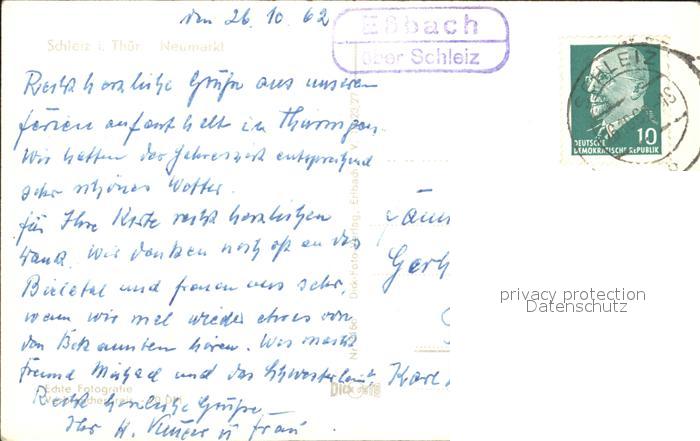 den 26.10.62
Eßbach
über Schleiz
Schleiz i. Thür. Neumarkt
SCHLEIZ
10
DEUTSCHE
DEMOKRATISCHE REPUBLIK
Recht herzliche Grüße aus unserem
Ferienaufenthalt in Thüringen.
Wir hatten der Jahreszeit entsprechend
sehr schönes Wetter.
Für Ihre Karte recht herzlichen
Dank. Wir denken noch oft an das
Bieletal und freuen uns sehr,
wenn wir mal wieder etwas von
den Bekannten hören. Was macht
Freund Michael und das Schwesterlein?
Recht herzliche Grüße
Ihr H. u. Frau
Fam
Gerh
Karl
privacy protection
Datenschutz
Echte Fotografie